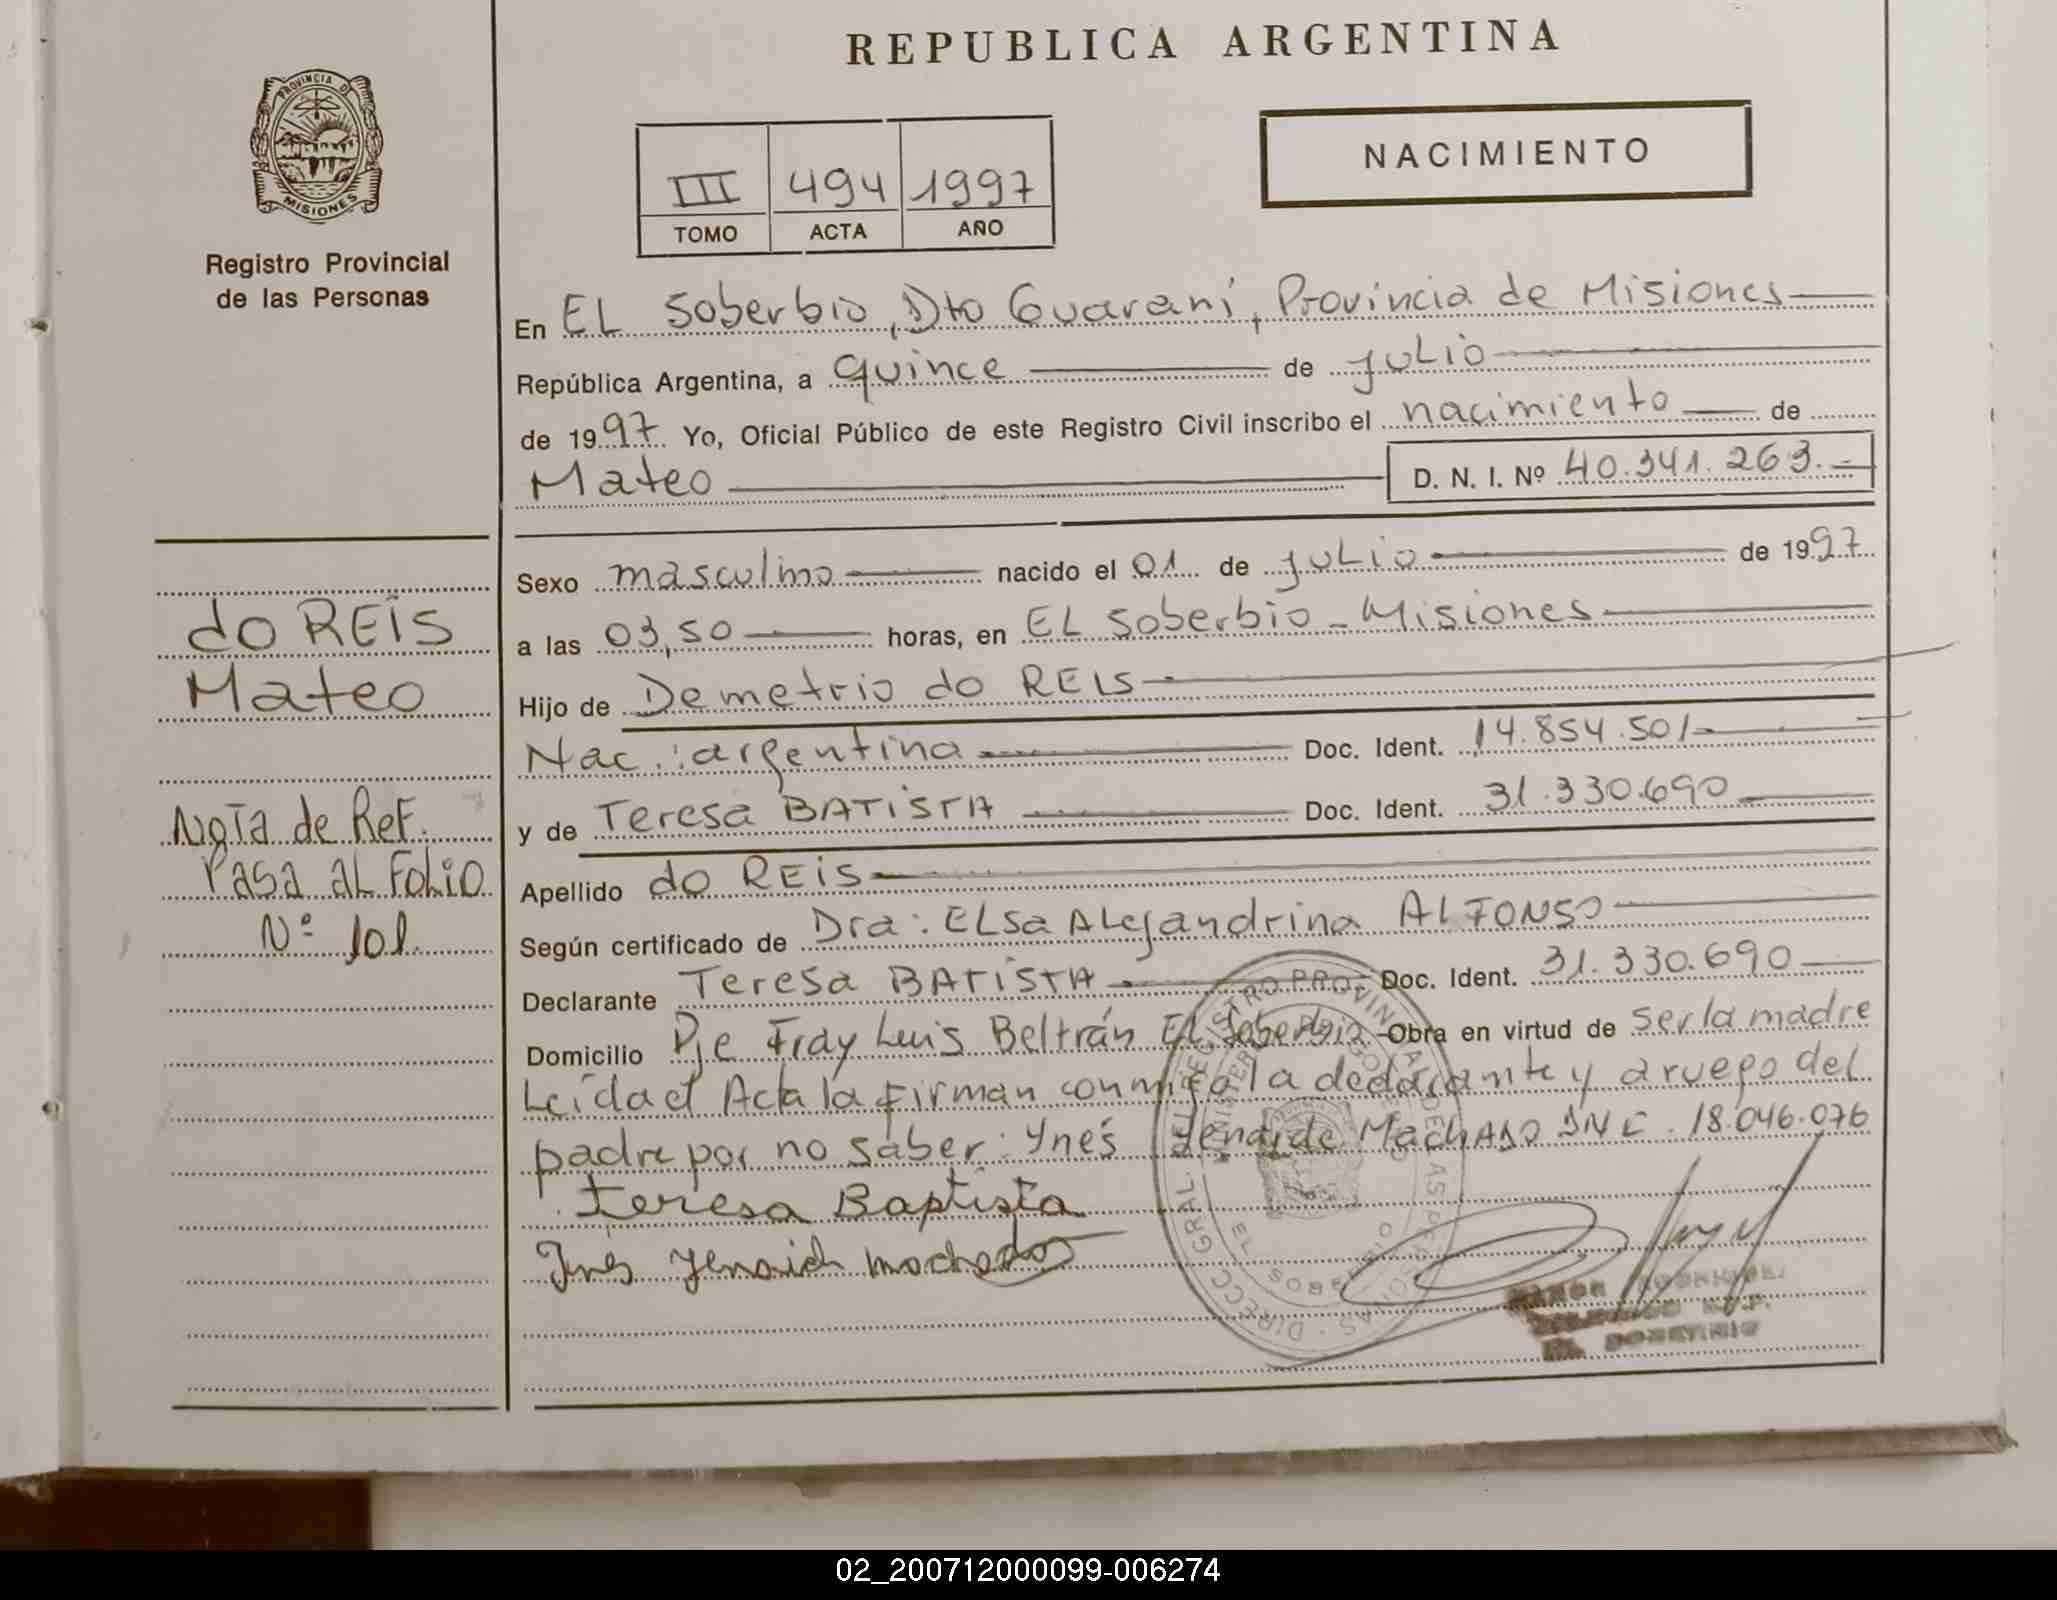 REPUBLICA ARGENTINA
PROVINCIA DE
MISIONES
Registro Provincial
de las Personas
III 494 1997
TOMO ACTA AÑO
NACIMIENTO
En EL Soberbio, Dto Guaraní, Provincia de Misiones
República Argentina, a quince de julio
de 1997 Yo, Oficial Público de este Registro Civil inscribo el nacimiento de
Mateo D. N. I. Nº 40.341.263.-
Sexo masculino nacido el 01 de julio de 1997
a las 03,50 horas, en EL Soberbio - Misiones
Hijo de Demetrio do REIS
Nac.: argentina Doc. Ident. 14.854.501
y de Teresa BATISTA Doc. Ident. 31.330.690
Apellido do REIS
Según certificado de Dra: ELSA ALejandrina ALFONSO
Declarante Teresa BATISTA Doc. Ident. 31.330.690
Domicilio Pje Fray Luis Beltrán EL Soberbio Obra en virtud de ser la madre
Leída el Acta la firman conmigo la declarante y a ruego del
padre por no saber: Ynés Yenaide MACHADO DNI. 18.046.076
Teresa Baptista
Inés Yenaide Machado
do REIS
Mateo
Nota de Ref.
Pasa al Folio
Nº 101.
EL SOBERBIO
02_200712000099-006274